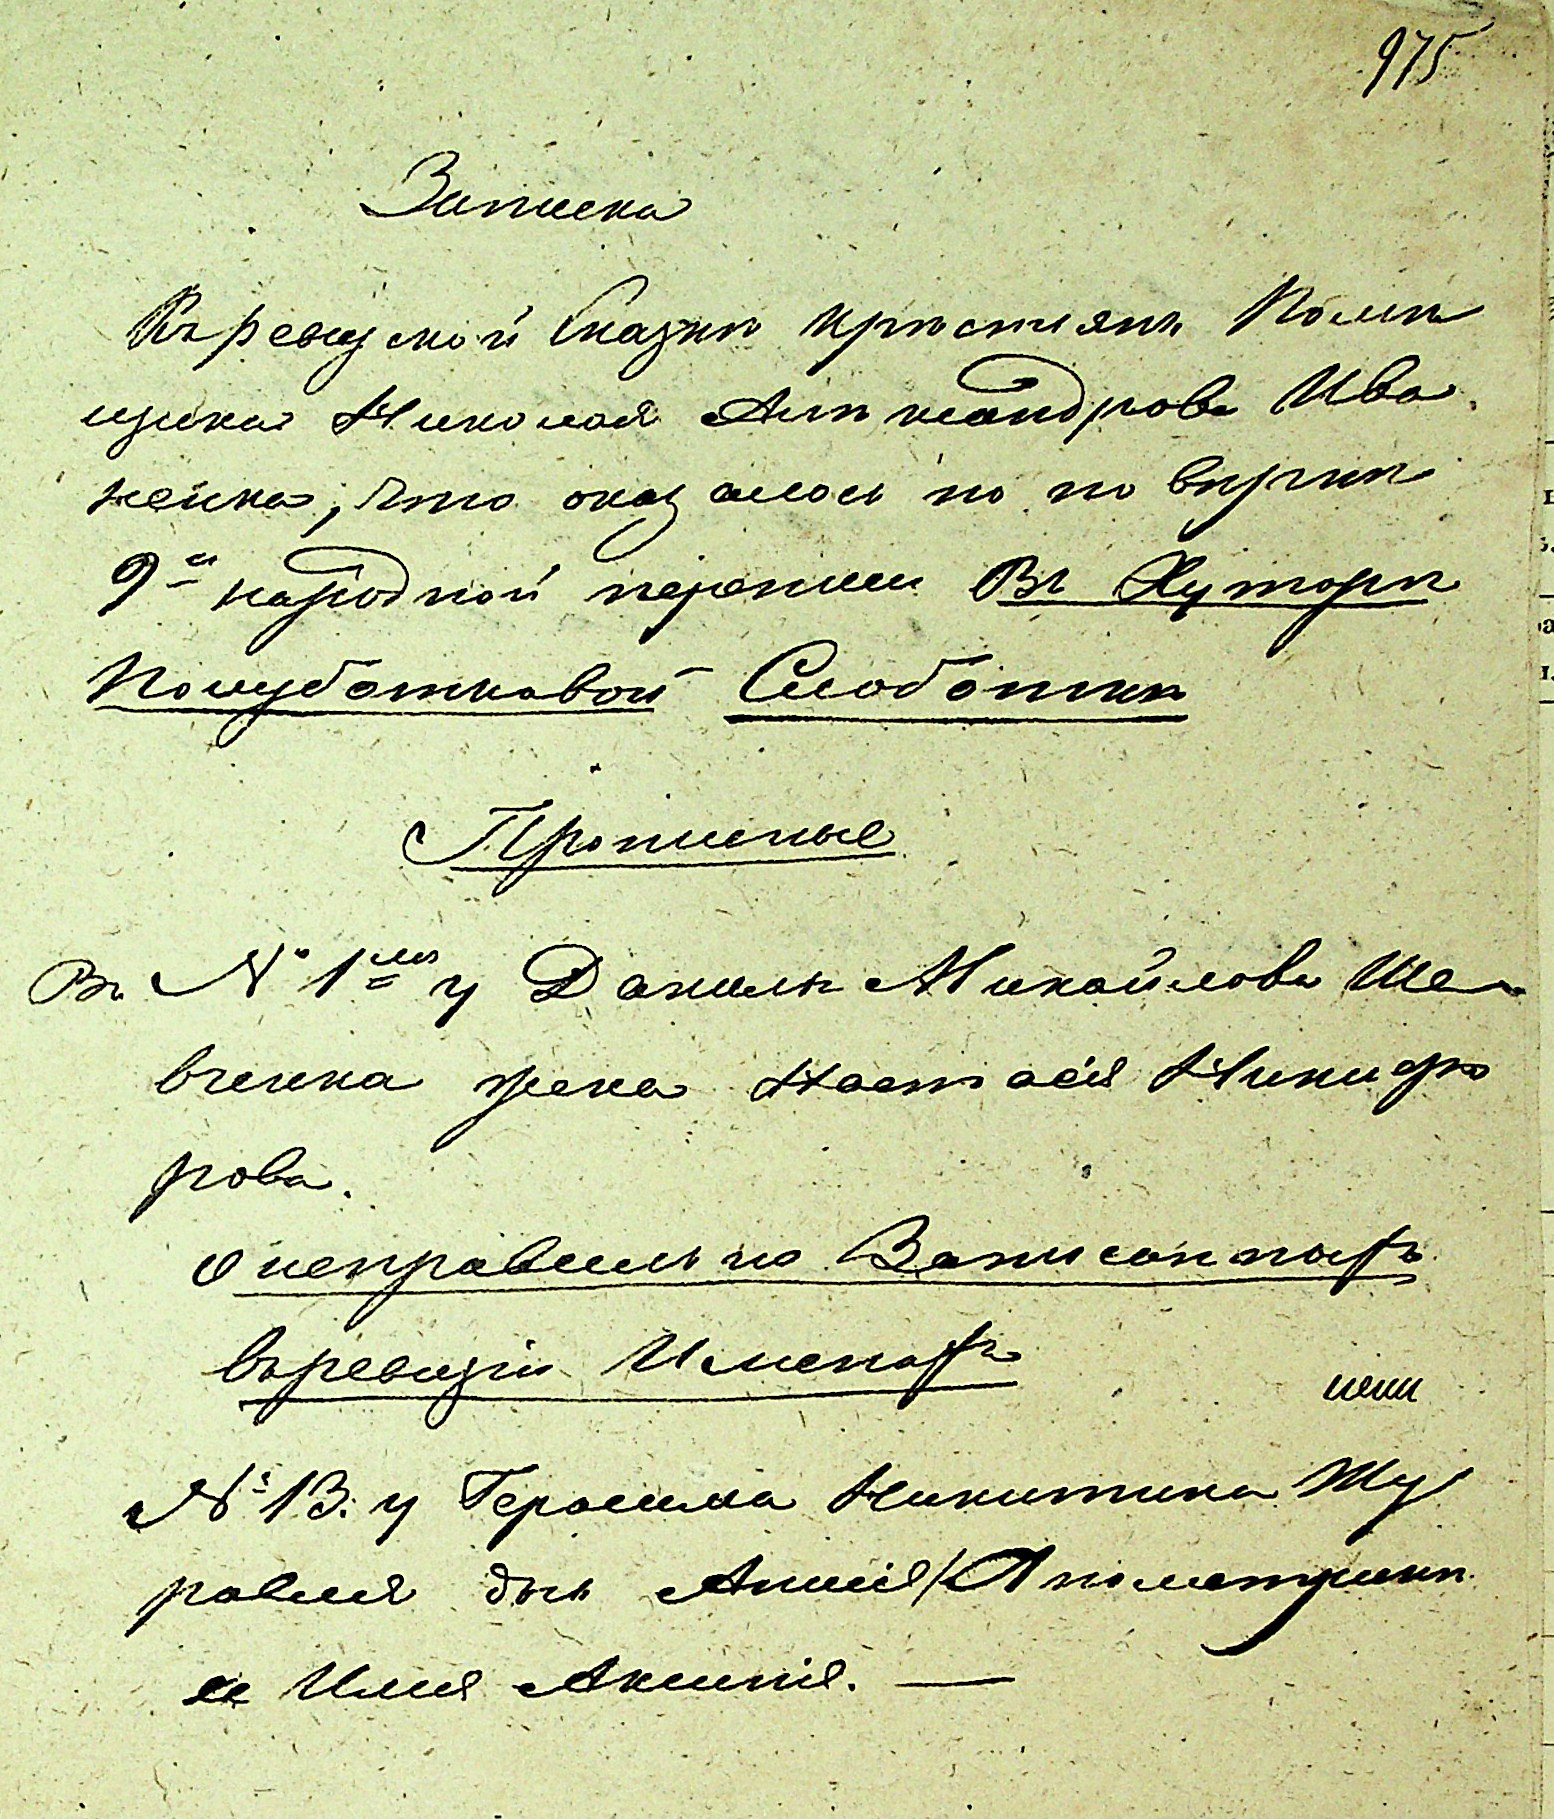 975
Записка
Къ ревизской Сказкѣ крѣстиянъ Помѣ
щика Николая Алѣксандрова Ива
ненка, что оказалось по повѣркѣ
9й народной переписи Въ Хуторѣ
Полуботковой Слоботкѣ
Прописные
Въ № 1мъ у Данилы Михайлова Ше
вченка жена Настасія Никифо
рова.
О неправельно Записанныхъ
въ ревизіи Именахъ
№ 13. у Герасима Никитина Жу
равля дчь Анисія / А по метрики
ее Имя Аксинія. —